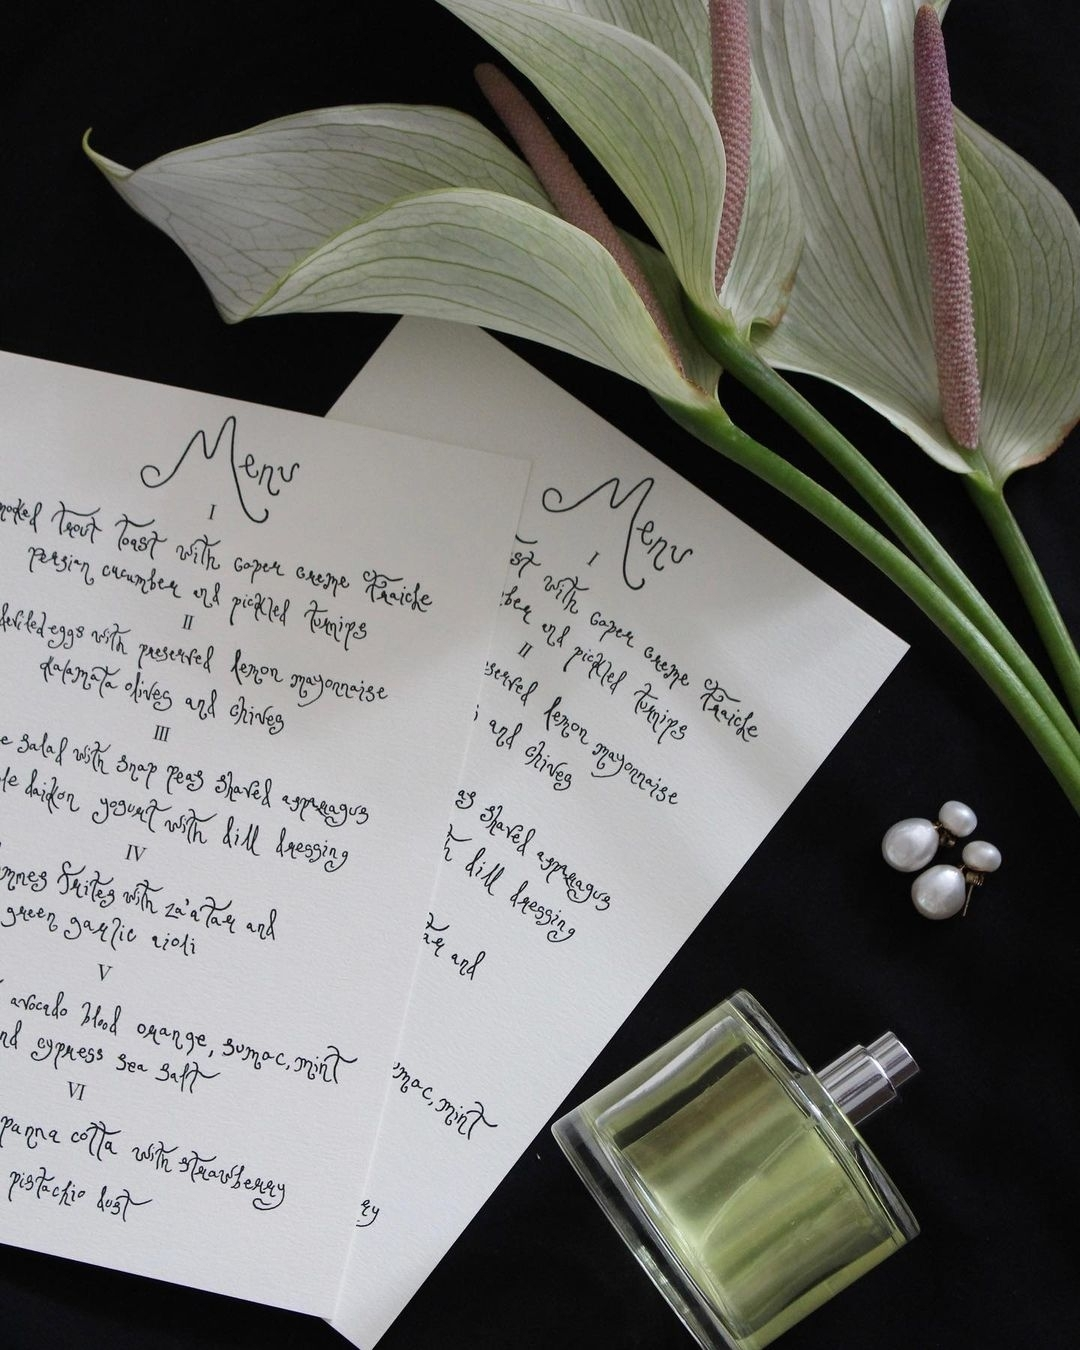 Menu
I
smoked trout toast with caper creme fraiche
persian cucumber and pickled turnips
II
deviled eggs with preserved lemon mayonnaise
kalamata olives and chives
III
salad with snap peas shaved asparagus
daikon yogurt with dill dressing
IV
frites with za'atar and
green garlic aioli
V
avocado blood orange, sumac, mint
and cypress sea salt
VI
panna cotta with strawberry
pistachio dust
Menu
I
with caper creme fraiche
and pickled turnips
II
lemon mayonnaise
and chives
shaved asparagus
dill dressing
and
mint